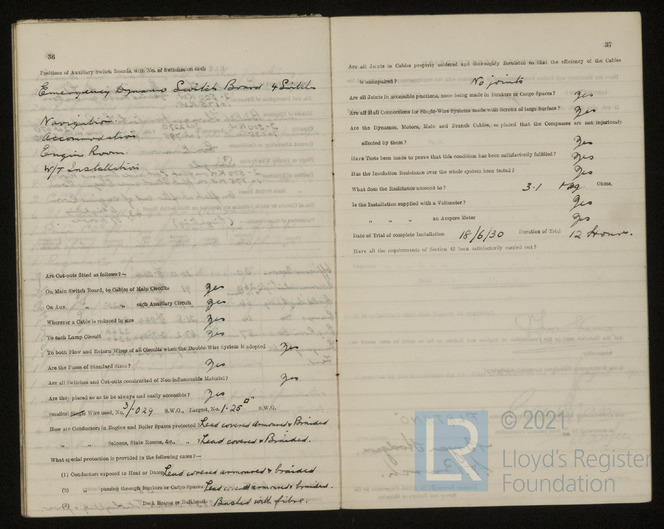 36
Positions of Auxiliary Switch Boards, with No. of Switches on each
Emergency Dynamo Switch Board 4 Switches
Navigation
Accommodation
Engine Room
W/T Installation
Are Cut-outs fitted as follows?—
On Main Switch Board, to Cables of Main Circuits Yes
On Aux. " " each Auxiliary Circuit Yes
Wherever a Cable is reduced in size Yes
To each Lamp Circuit Yes
To both Flow and Return Wires of all Circuits when the Double-Wire System is adopted Yes
Are the Fuses of Standard Sizes? Yes
Are all Switches and Cut-outs constructed of Non-inflammable Material? Yes
Are they placed so as to be always and easily accessible? Yes
Smallest Single Wire used, No. 3/.029 S.W.G., Largest, No. 1.25 □" S.W.G.
How are Conductors in Engine and Boiler Spaces protected? Lead covered armoured & Braided
" " Saloons, State Rooms, &c., " ? Lead covered & Braided.
What special protection is provided in the following cases?—
(1) Conductors exposed to Heat or Damp Lead covered armoured & braided
(2) " passing through Bunkers or Cargo Spaces Lead covered armoured & braided.
(3) " " Deck Beams or Bulkheads Bushed with fibre.
37
Are all Joints in Cables properly soldered and thoroughly insulated so that the efficiency of the Cables
is unimpaired? No joints
Are all Joints in accessible positions, none being made in Bunkers or Cargo Spaces? Yes
Are all Hull Connections for Single-Wire Systems made with Screws of large Surface? Yes
Are the Dynamos, Motors, Main and Branch Cables, so placed that the Compasses are not injuriously
affected by them? Yes
Have Tests been made to prove that this condition has been satisfactorily fulfilled? Yes
Has the Insulation Resistance over the whole system been tested? Yes
What does the Resistance amount to? 3.1 Meg Ohms.
Is the Installation supplied with a Voltmeter? Yes
" " " an Ampere Meter Yes
Date of Trial of complete Installation 18/6/30 Duration of Trial 12 Hours.
Have all the requirements of Section 42 been satisfactorily carried out?
© 2021
LR
Lloyd's Register
Foundation